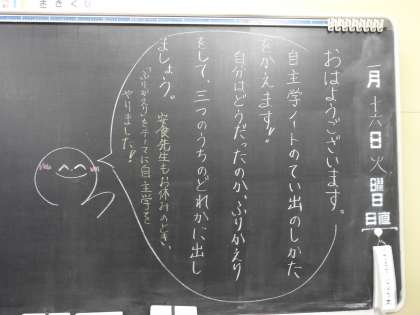 一月十六日火曜日
日直
おはようございます。
自主学ノートのてい出のしかた
をかえます!!
自分はどうだったのかふりかえり
をして、三つのうちのどれかに出し
ましょう。
安食先生もお休みのとき、
「ふりかえり」をテーマに自主学を
やりました!!